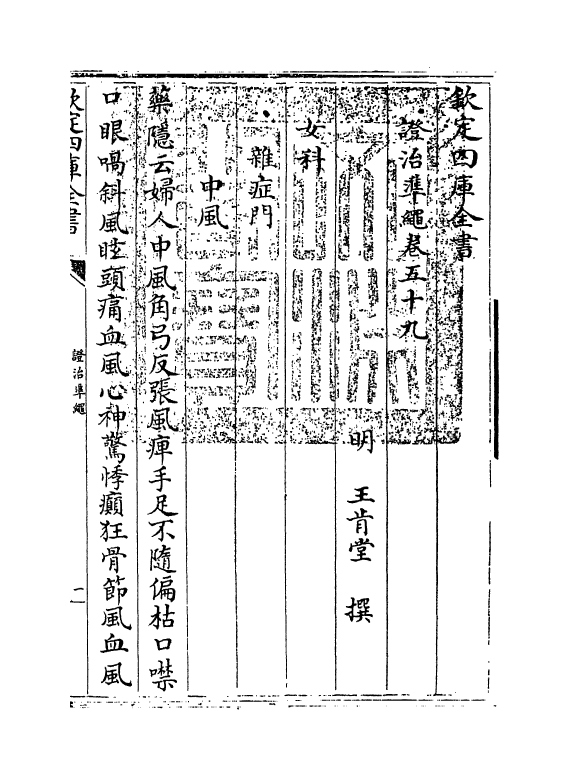 欽定四庫全書
證治準繩卷五十九
明 王肯堂 撰
女科
雜症門
中風
藥隱云婦人中風角弓反張風痺手足不隨偏枯口噤
口眼喎斜風眩頭痛血風心神驚悸癲狂骨節風血風
欽定四庫全書
證治準繩